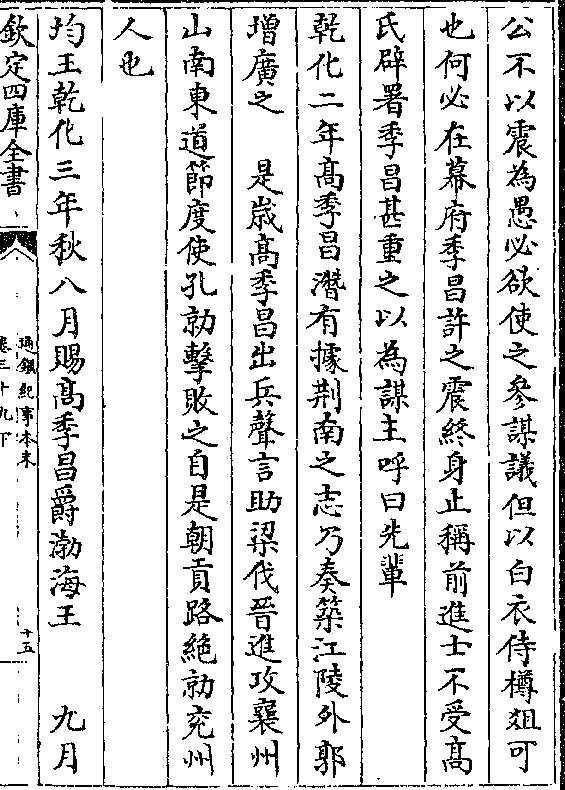 公不以震為愚必欲使之參謀議但以白衣侍樽俎可
也何必在幕府季昌許之震終身止稱前進士不受髙
氏辟署季昌甚重之以為謀主呼曰先輩
乾化二年髙季昌潛有據荆南之志乃奏築江陵外郭
增廣之　是歲髙季昌出兵聲言助梁伐晉進攻襄州
山南東道節度使孔勍擊敗之自是朝貢路絶勍兖州
人也
均王乾化三年秋八月賜髙季昌爵渤海王　九月
欽定四庫全書
通鑑紀事本末
卷三十九下
十五